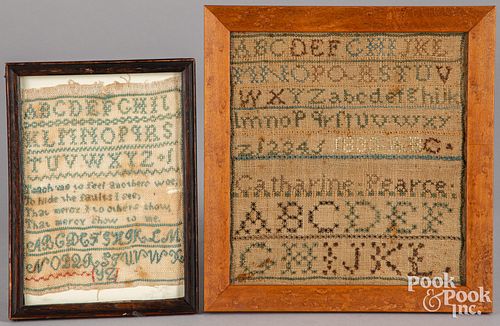 ABCDEFGHIL
KLMNOPQRS
TUVWXYZ
Teach me to feel anothers woe
To hide the faults I see;
That mercy I to others show,
That mercy show to me.
ABCDEFGHIKLM
NOPQRSTUVWX
YZ
ABCDEFGHIJKL
MNOPQRSTUV
WXYZabcdefghijk
lmnopqrſtuvwxy
z 1234
Catharine Pearce:
ABCDEF
GHIJKL
POOK
&POOK
INC.